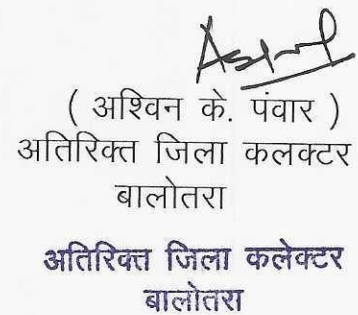 ( अश्विन के. पंवार )
अतिरिक्त जिला कलक्टर
बालोतरा
अतिरिक्त जिला कलेक्टर
बालोतरा